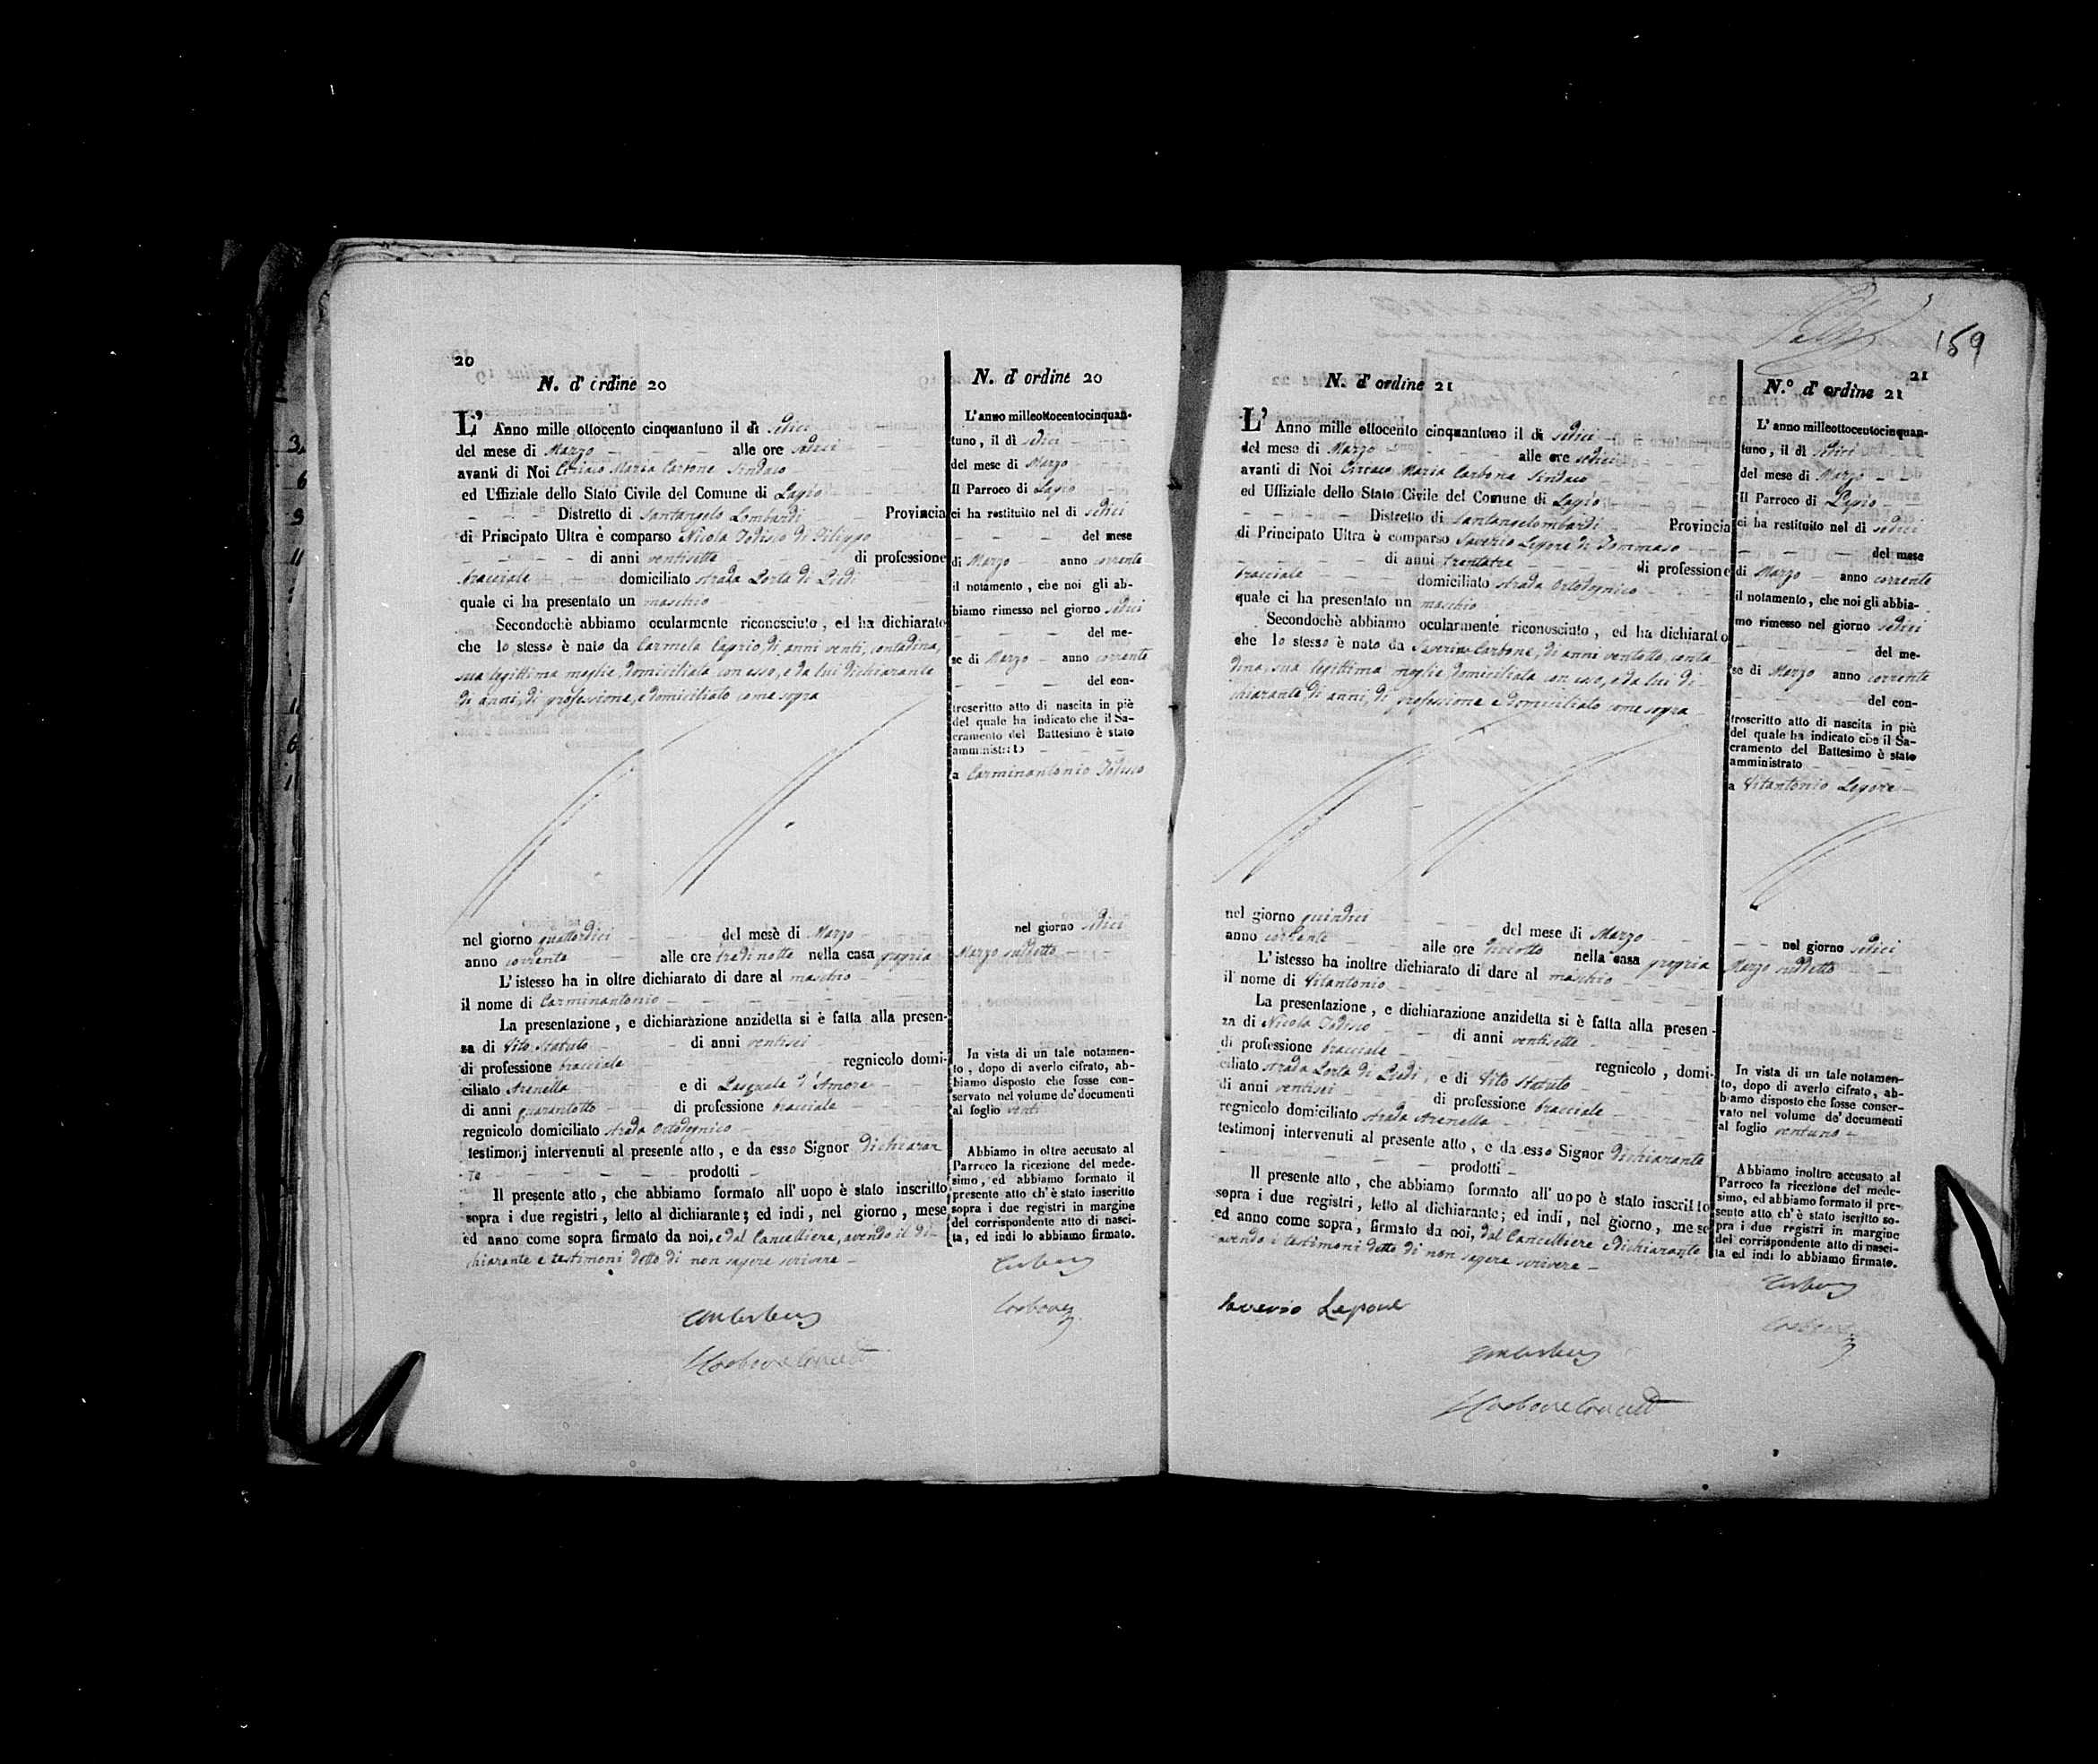 20
N. d' ordine 20
L' Anno mille ottocento cinquantuno il di sedici
del mese di Marzo alle ore sedici
avanti di Noi Ciriaco Maria Carbone Sindaco
ed Uffiziale dello Stato Civile del Comune di Lagio
Distretto di Santangelo Lombardi Provincia
di Principato Ultra è comparso Nicola Todisco di Filippo
di anni ventisette di professione
bracciale domiciliato strada Porta di Piedi
quale ci ha presentato un maschio
Secondochè abbiamo ocularmente riconosciuto, ed ha dichiarato
che lo stesso è nato da Carmela Caprio, di anni venti, contadina,
sua legittima moglie domiciliata con esso, e da lui dichiarante
di anni, di professione, e domiciliato come sopra
nel giorno quattordici del mese di Marzo
anno corrente alle ore tredi notte nella casa propria
L'istesso ha in oltre dichiarato di dare al maschio
il nome di Carminantonio
La presentazione, e dichiarazione anzidetta si è fatta alla presen-
za di Vito Statuto di anni ventisei
di professione bracciale regnicolo domi-
ciliato Arenella e di Pasquale d'Amore
di anni quarantotto di professione bracciale
regnicolo domiciliato strada Ortodonico
testimonj intervenuti al presente atto, e da esso Signor dichiaran
te prodotti
Il presente atto, che abbiamo formato all' uopo è stato inscritto
sopra i due registri, letto al dichiarante; ed indi, nel giorno, mese
ed anno come sopra firmato da noi, e dal Cancelliere, avendo il di-
chiarante e testimoni detto di non sapere scrivere
N. d' ordine 20
L'anno milleottocentocinquan-
tuno, il di sedici
del mese di Marzo
Il Parroco di Lagio
ci ha restituito nel di sedici
del mese
di Marzo anno corrente
il notamento, che noi gli ab-
biamo rimesso nel giorno sedici
del me-
se di Marzo anno corrente
del con-
troscritto atto di nascita in piè
del quale ha indicato che il Sa-
cramento del Battesimo è stato
amministrato
a Carminantonio Todisco
nel giorno sedici
Marzo suddetto
In vista di un tale notamen-
to, dopo di averlo cifrato, ab-
biamo disposto che fosse con-
servato nel volume de' documenti
al foglio venti
Abbiamo in oltre accusato al
Parroco la ricezione del mede-
simo, ed abbiamo formato il
presente atto ch' è stato inscritto
sopra i due registri in margine
del corrispondente atto di nasci-
ta, ed indi lo abbiamo firmato.
Carbone
159
21
N. d' ordine 21
L' Anno mille ottocento cinquantuno il di sedici
del mese di Marzo alle ore sedici
avanti di Noi Ciriaco Maria Carbone Sindaco
ed Uffiziale dello Stato Civile del Comune di Lagio
Distretto di Santangelombardi Provincia
di Principato Ultra è comparso Saverio Lepore di Tommaso
di anni trentatre di professione
bracciale domiciliato strada Ortodonico
quale ci ha presentato un maschio
Secondochè abbiamo ocularmente riconosciuto, ed ha dichiarato
che lo stesso è nato da Saverina Carbone, di anni ventotto, conta
dina, sua legittima moglie domiciliata con esso, e da lui di
chiarante di anni, di professione e domiciliato come sopra
nel giorno quindici del mese di Marzo
anno corrente alle ore diciotto nella casa propria
L'istesso ha inoltre dichiarato di dare al maschio
il nome di Vitantonio
La presentazione, e dichiarazione anzidetta si è fatta alla presen-
za di Nicola Todisco di anni ventisette
di professione bracciale regnicolo, domi-
ciliato strada Porta di Piedi, e di Vito Statuto
di anni ventisei di professione bracciale
regnicolo domiciliato strada Arenella
testimonj intervenuti al presente atto, e da esso Signor dichiarante
prodotti
Il presente atto, che abbiamo formato all' uopo è stato inscritto
sopra i due registri, letto al dichiarante; ed indi, nel giorno, mese
ed anno come sopra, firmato da noi, dal Cancelliere e dichiarante
avendo i testimoni detto di non sapere scrivere
Saverio Lepore
N.° d' ordine 21
L' anno milleottocentocinquan-
tuno, il di sedici
del mese di Marzo
Il Parroco di Lagio
ci ha restituito nel di sedici
del mese
di Marzo anno corrente
il notamento, che noi gli abbia-
mo rimesso nel giorno sedici
del me-
se di Marzo anno corrente
del con-
troscritto atto di nascita in piè
del quale ha indicato che il Sa-
cramento del Battesimo è stato
amministrato
a Vitantonio Lepore
nel giorno sedici
Marzo suddetto
In vista di un tale notamen-
to, dopo di averlo cifrato, ab-
biamo disposto che fosse conser-
vato nel volume de' documenti
al foglio ventuno
Abbiamo inoltre accusato al
Parroco la ricezione del mede-
simo, ed abbiamo formato il pre-
sente atto ch' è stato iscritto so-
pra i due registri in margine
del corrispondente atto di nasci-
ta ed indi lo abbiamo firmato.
Carbone